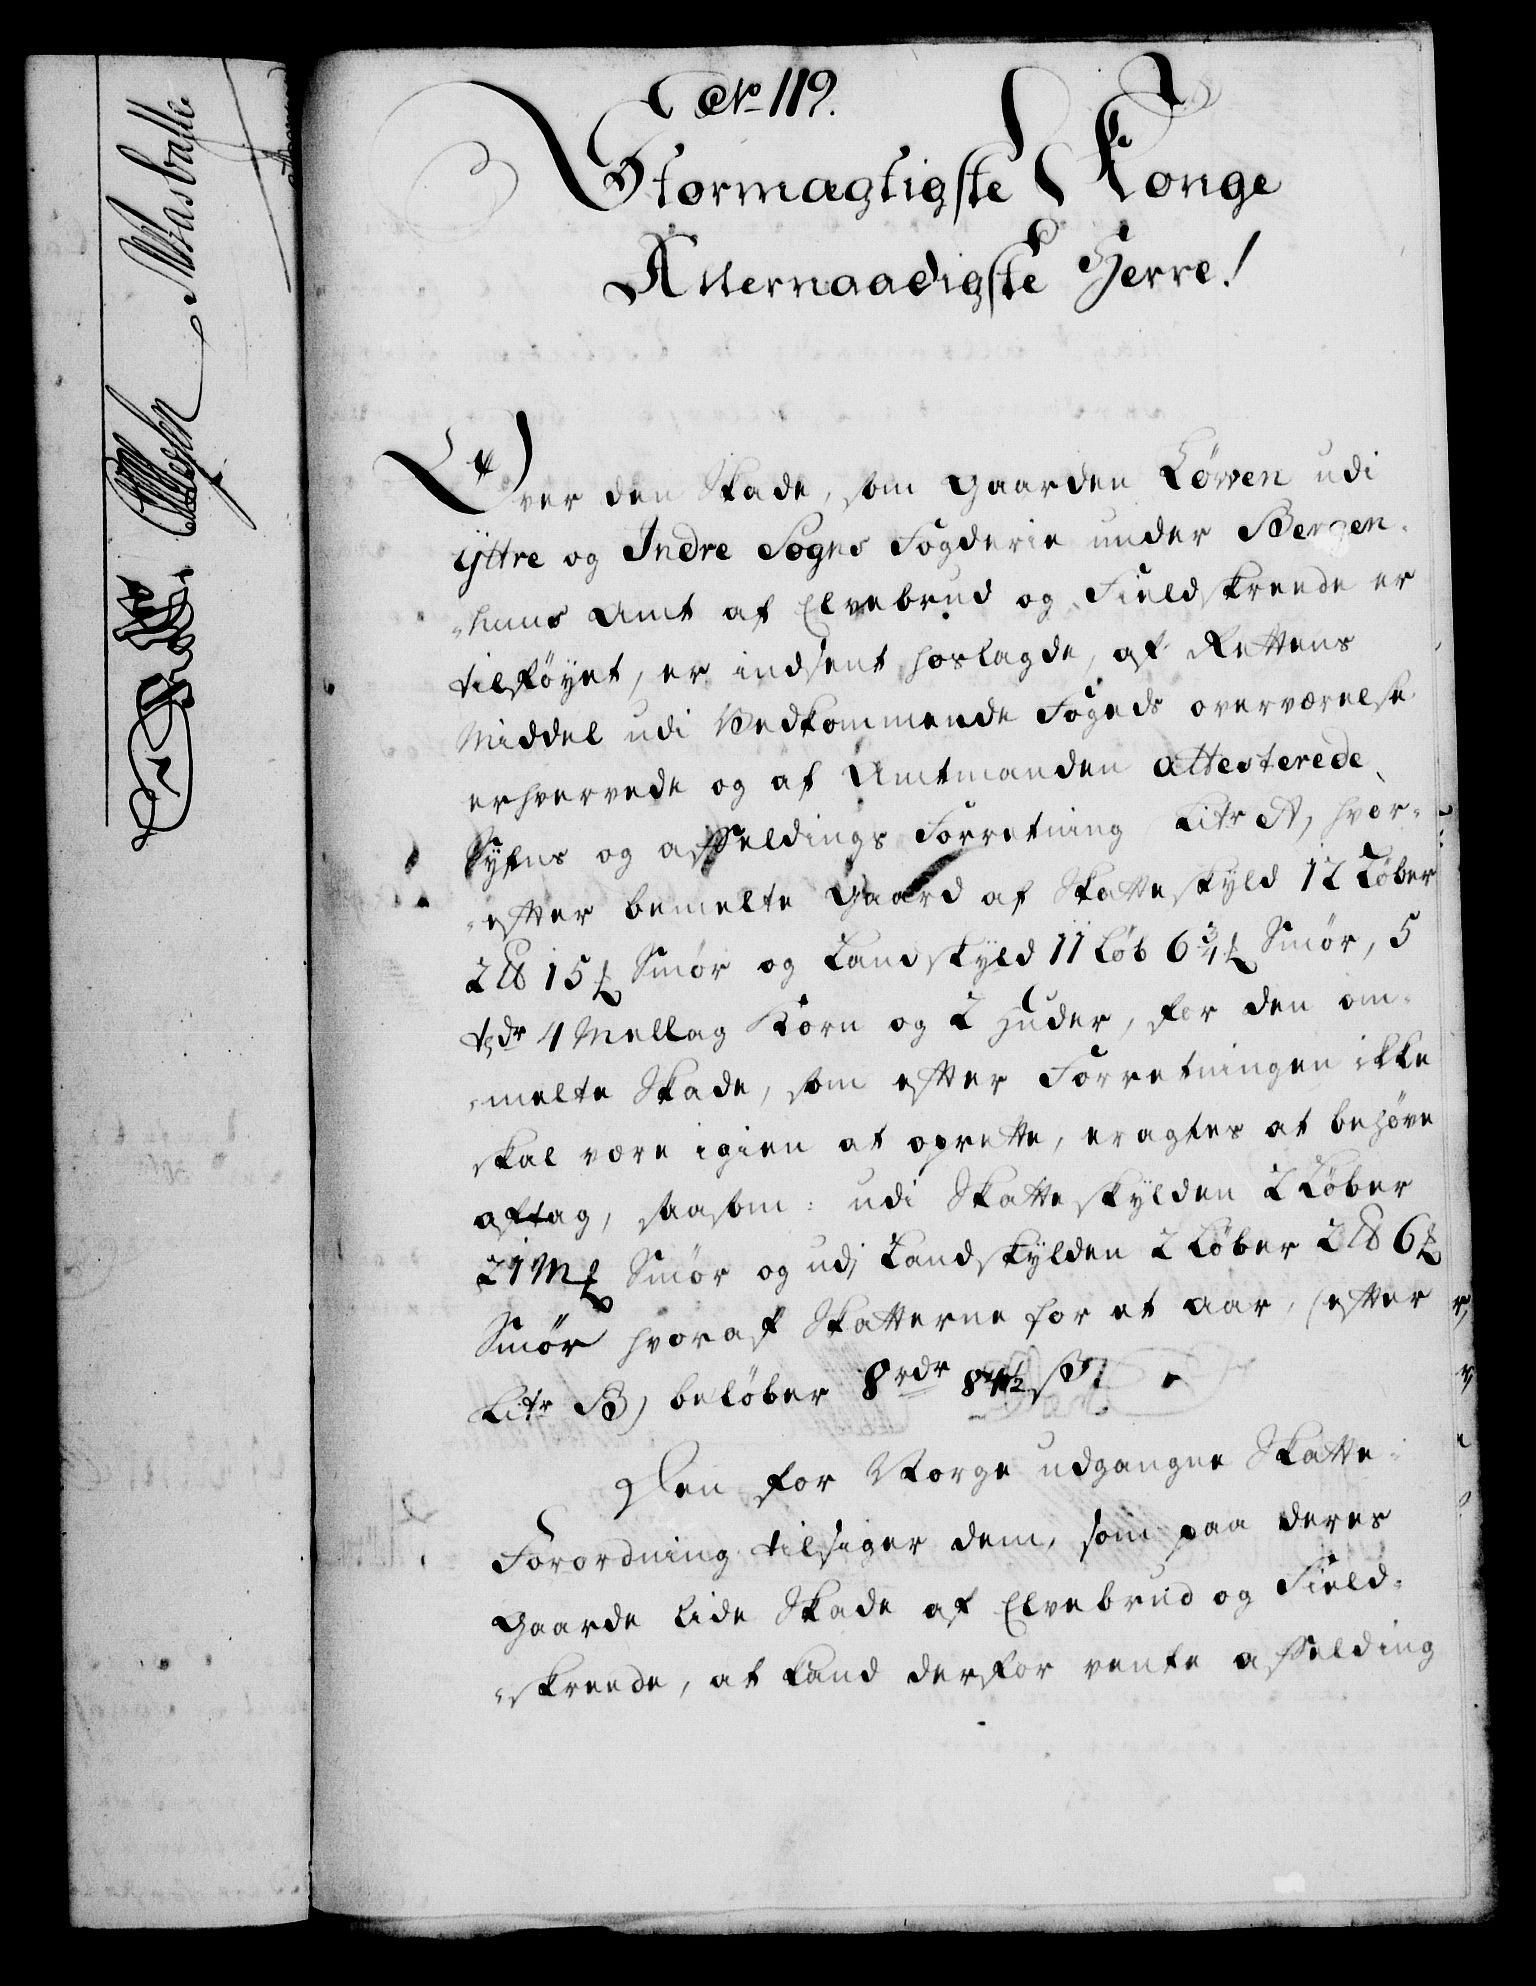 No 119.
Stormægtigste Konge
Allernaadigste Herre!
Over den Skade, som Gaarden Lövven udi
Ÿttre og Indre Sogns Fogderie under Bergen-
-huus Amt af Elvebrud og Fieldskreede er
tilföyet, er indsent hoslagde, af Rettens
Middel udi Vedkommende Fogeds overværelse
erhvervede og af Amtmanden attesterede
Syns og affældings Forretning Litr A, hvor-
-efter bemelte Gaard af Skatteskyld 12 Löber
2 ℔ 15 ℔ Smör og Landskyld 11 Löb 6 3/4 ℔ Smör, 5
tdr 4 Mellag Korn og 2 Huder, for den om-
-melte Skade, som efter Forretningen ikke
skal være igien at oprette, eragtes at behöve
aftag, saasom: udi Skatteskylden 2 Löber
21 M℔ Smör og udi Landskylden 2 Löber 2 ℔ 6 ℔
Smör hvoraf Skatterne for et aar, (efter
Litr B) belöber 8 rdr
Den for Norge udgangne Skatte-
Forordning tilsiger dem, som paa deres
Gaarde lide Skade af Elvebrud og Field-
-skreede, at kand derfor vente affælding